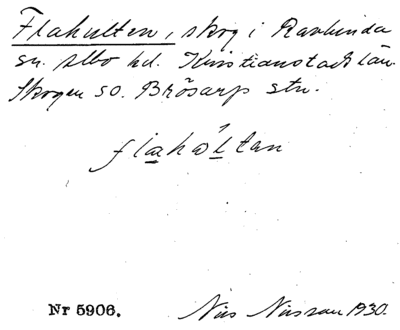 Flahulten, skog i Ravlunda
sn. Albo hd. Kristianstads län.
Skogen so. Brösarp stn.
flahàltan
Nr 5906.
Nils Nilsson 1930.